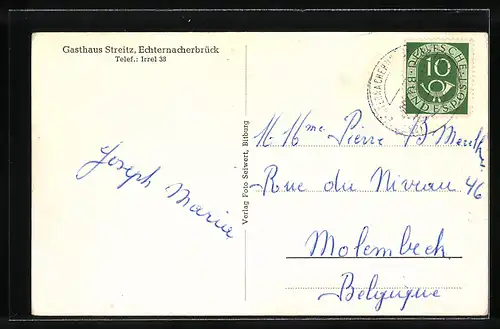 Gasthaus Streitz, Echternacherbrück
Telef.: Irrel 38
Verlag Foto Seiwert, Bitburg
DEUTSCHE
10
BUNDESPOST
M. Mme Pierre
Rue du Niveau 46
Molembeck
Belgique
Joseph Maria